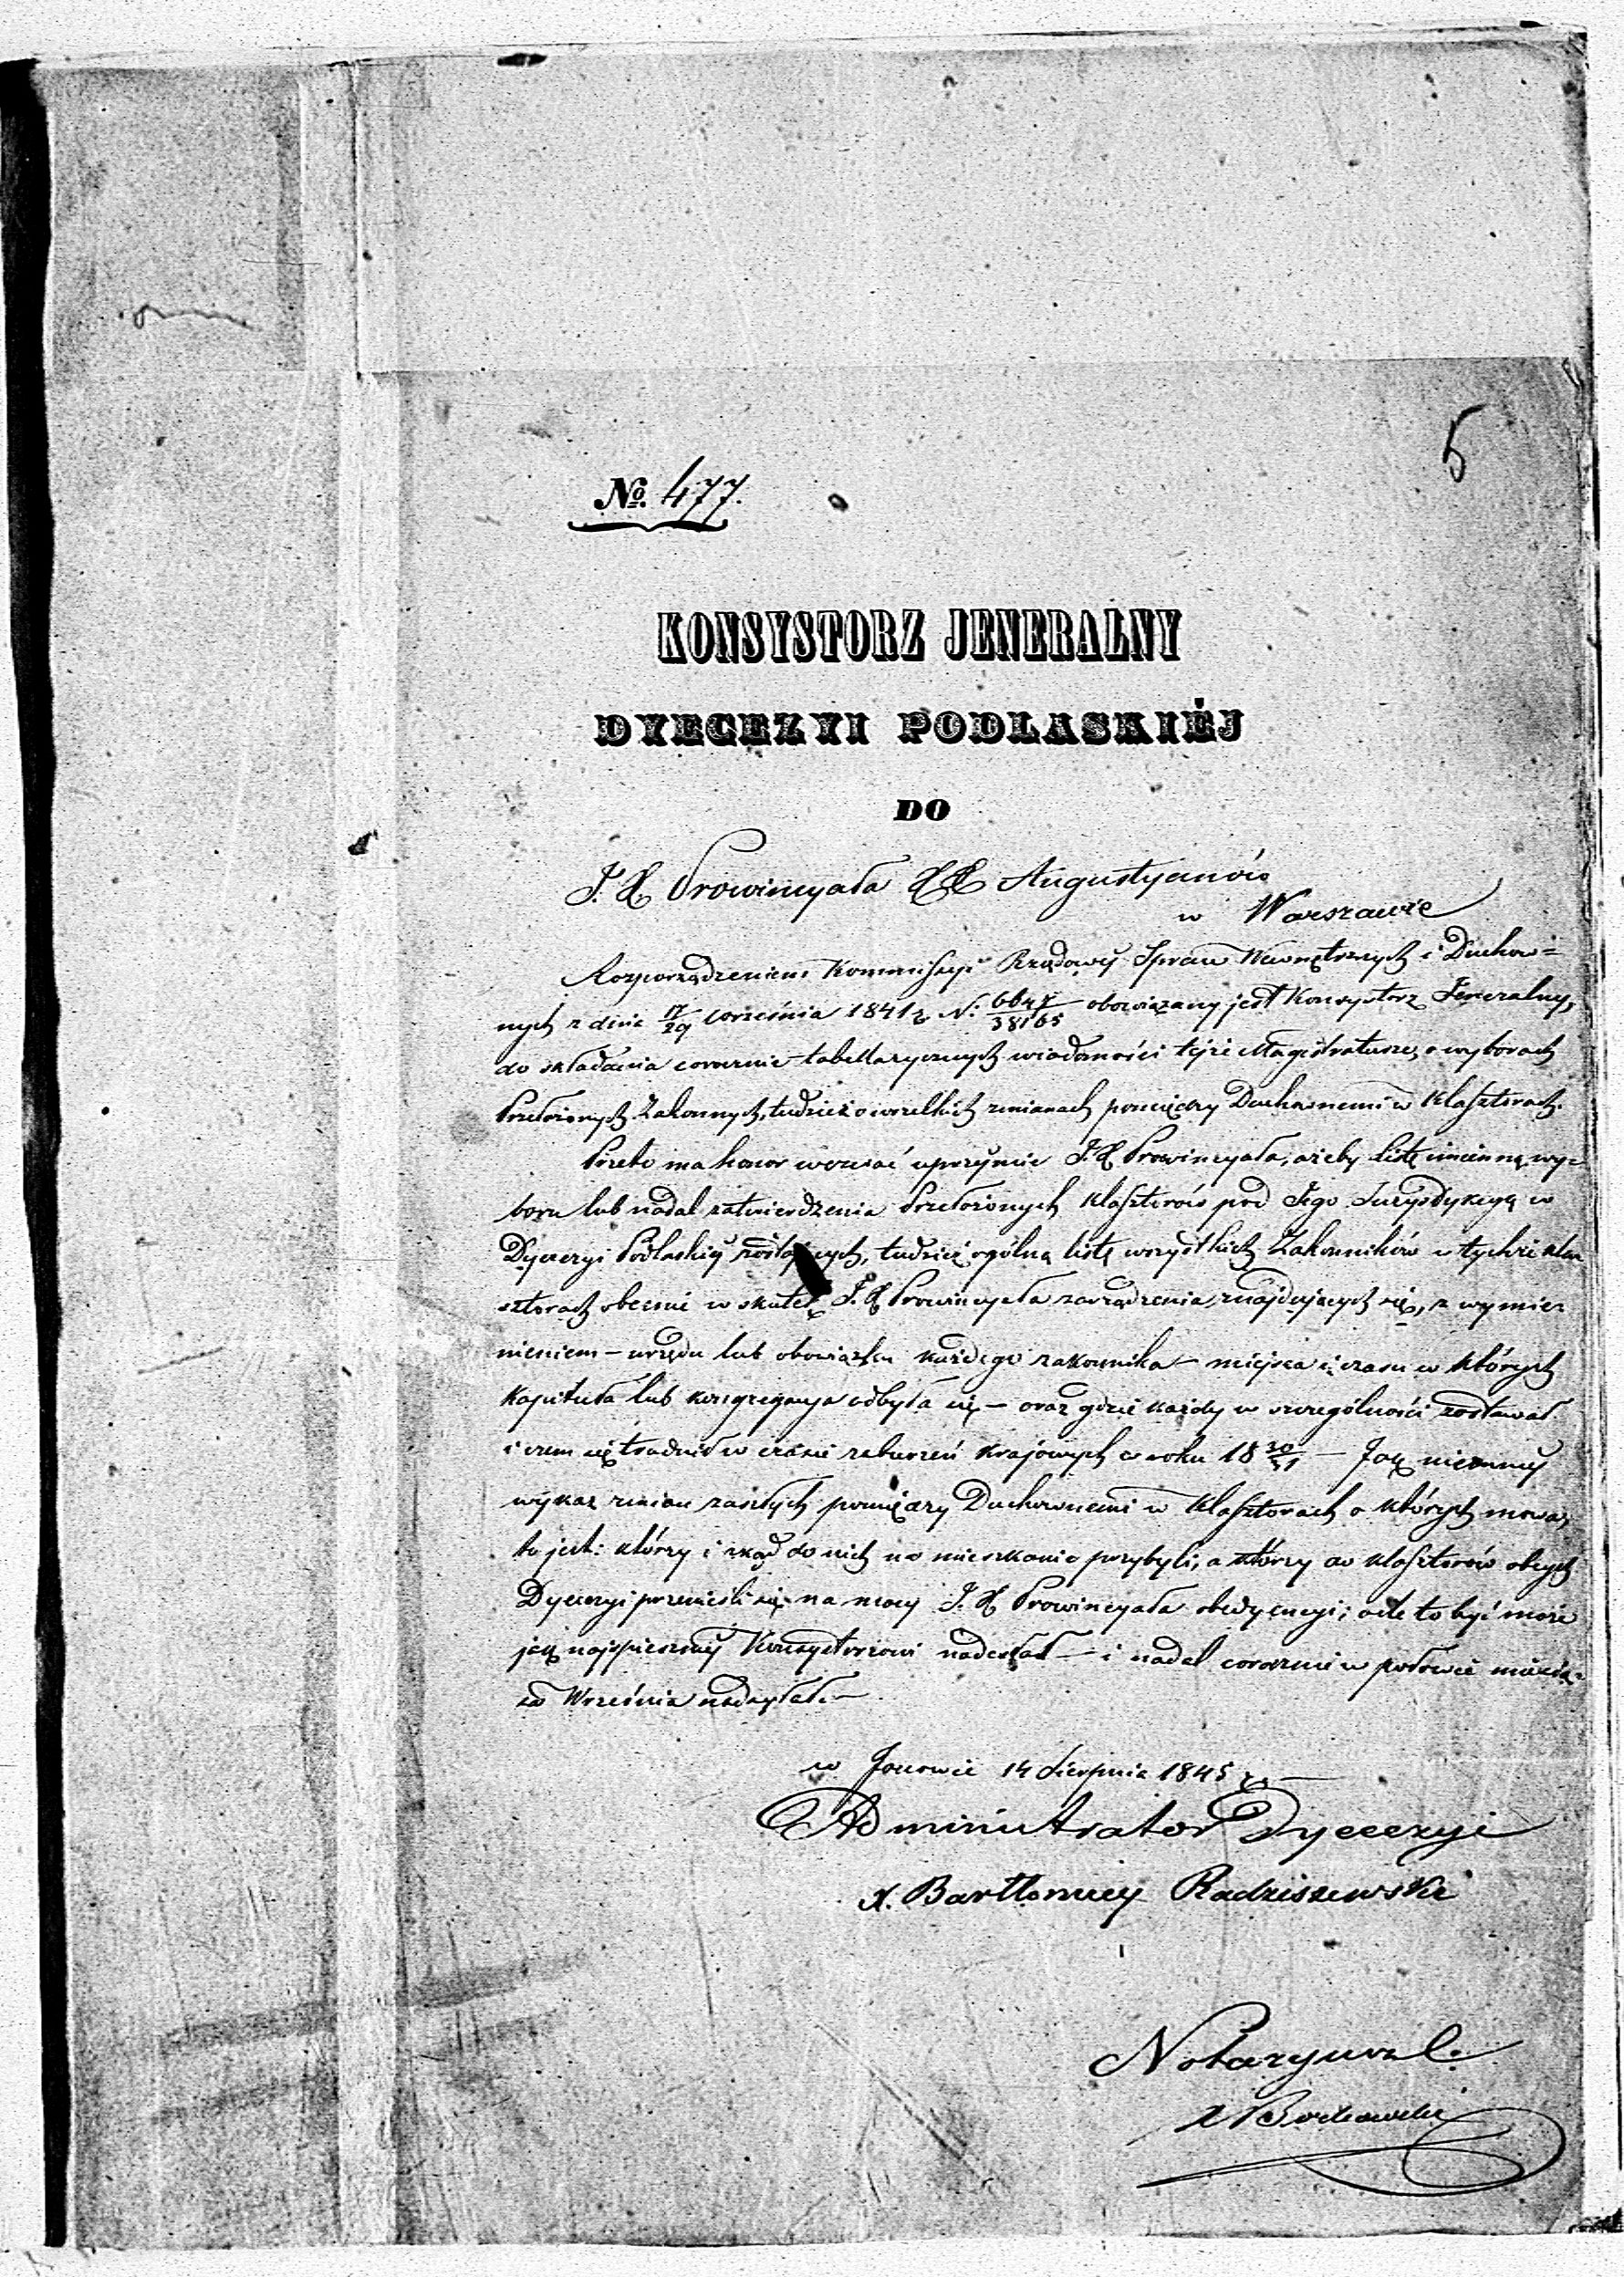 5
No. 477.
KONSYSTORZ JENERALNY
DYECEZYI PODLASKIÉJ
DO
J. X Prowincyała XX Augustyanów
w Warszawie
Rozporządzeniem Kommissyi Rządowéy Spraw Wewnętrznych i Duchow=
nych z dnia 17/29 Września 1841 r. N. /38165 obowiązany jest Konsystorz Jeneralny,
do składania corocznie tabellarycznych wiadomości tejże Magistraturze, o wyborach
Przełożonych Zakonnych, tudzież o wszelkich zmianach pomiędzy Duchownemi w Klasztorach.
Przeto ma honor wezwać uprzejmie J. X Prowincyała, ażeby listę imienną wy=
boru lub nadal zatwierdzenia Przełożonych Klasztorów pod Jego Jurysdykcyą w
Dyecezyi Podlaskiéy zostających, tudzież ogólną listę wszystkich Zakonników w tychże Kla
sztorach obecnie w skutek J. X Prowincyała zarządzenia, znajdujących się, z wymie
nieniem – urzędu lub obowiązku każdego zakonnika – miejsca i czasu w których
Kapituła lub kongregacya odbyła się – oraz gdzie każdy w szczególności zostawał
i czem się trudnił w czasie zaburzeń krajowych w roku 18 30/31 – Jak niemniéy
wykaz zmian zaszłych pomiędzy Duchownemi w Klasztorach o których mowa,
to jest: którzy i zkąd do nich na mieszkanie przybyli, a którzy do Klasztorów obcych
Dyecezyi przenieśli się na mocy J. X Prowincyała obedyencyi; o ile to być może
jak najspieszniéy Konsystorzowi nadesłał – i nadal corocznie w połowie miesią=
ca Września nadsyłał. –
w Janowie 14 Sierpnia 1845 r. –
Administrator Dyecezyi
X. Bartłomiey Radziszewski
Notaryusz